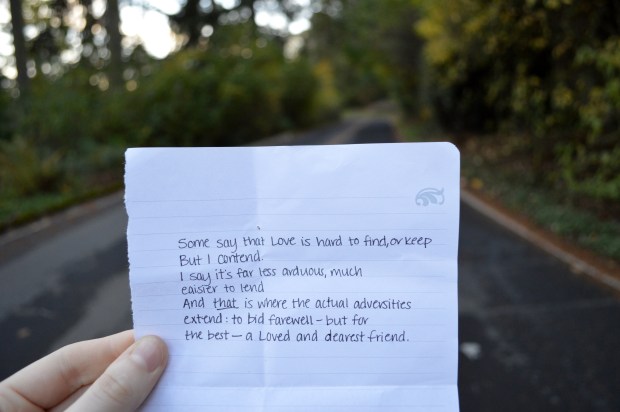 Some say that Love is hard to find, or keep
But I contend.
I say it's far less arduous, much
eaisier to lend
And that is where the actual adversities
extend: to bid farewell - but for
the best - a Loved and dearest friend.